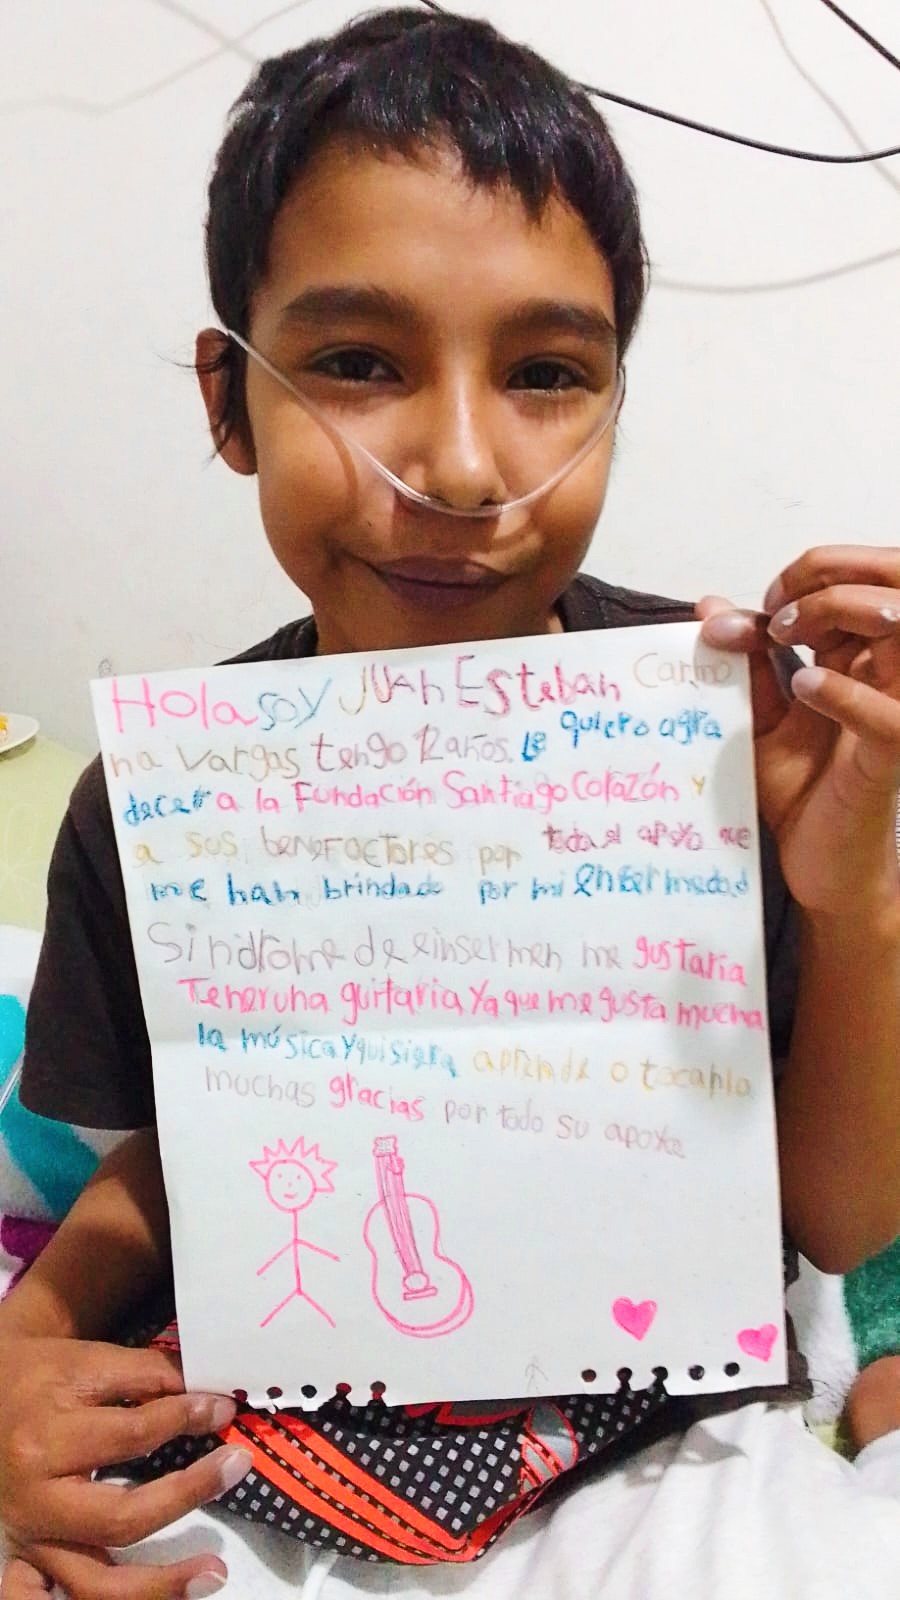 Hola soy Juan Esteban Carmo
na Vargas tengo 12 años. Le quiero agra
decer a la Fundación Santiago Corazón y
a sos benefactores por todo el apoyo que
me han brindado por mi enfermedad
Sindrome de einsermen me gustaria
Tener una guitaria ya que me gusta mucha
la música y quisiera aprende o tocarla
muchas gracias por todo su apoxte